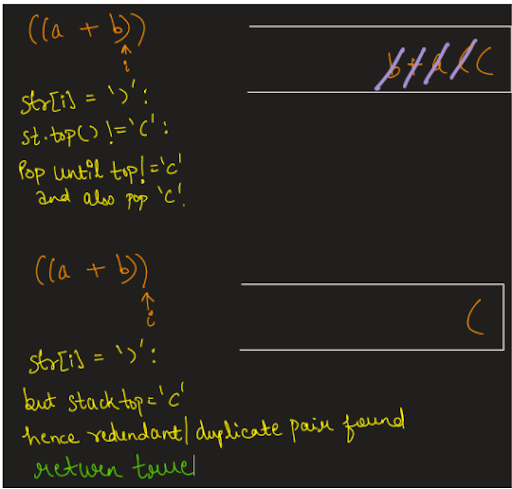 ((a + b))
b + a ( (
i
str[i] = ')' :
st.top() != '(' :
Pop until top != '('
and also pop '('.
((a + b))
i
(
str[i] = ')' :
but stack top = '('
hence redundant/duplicate pair found
return true